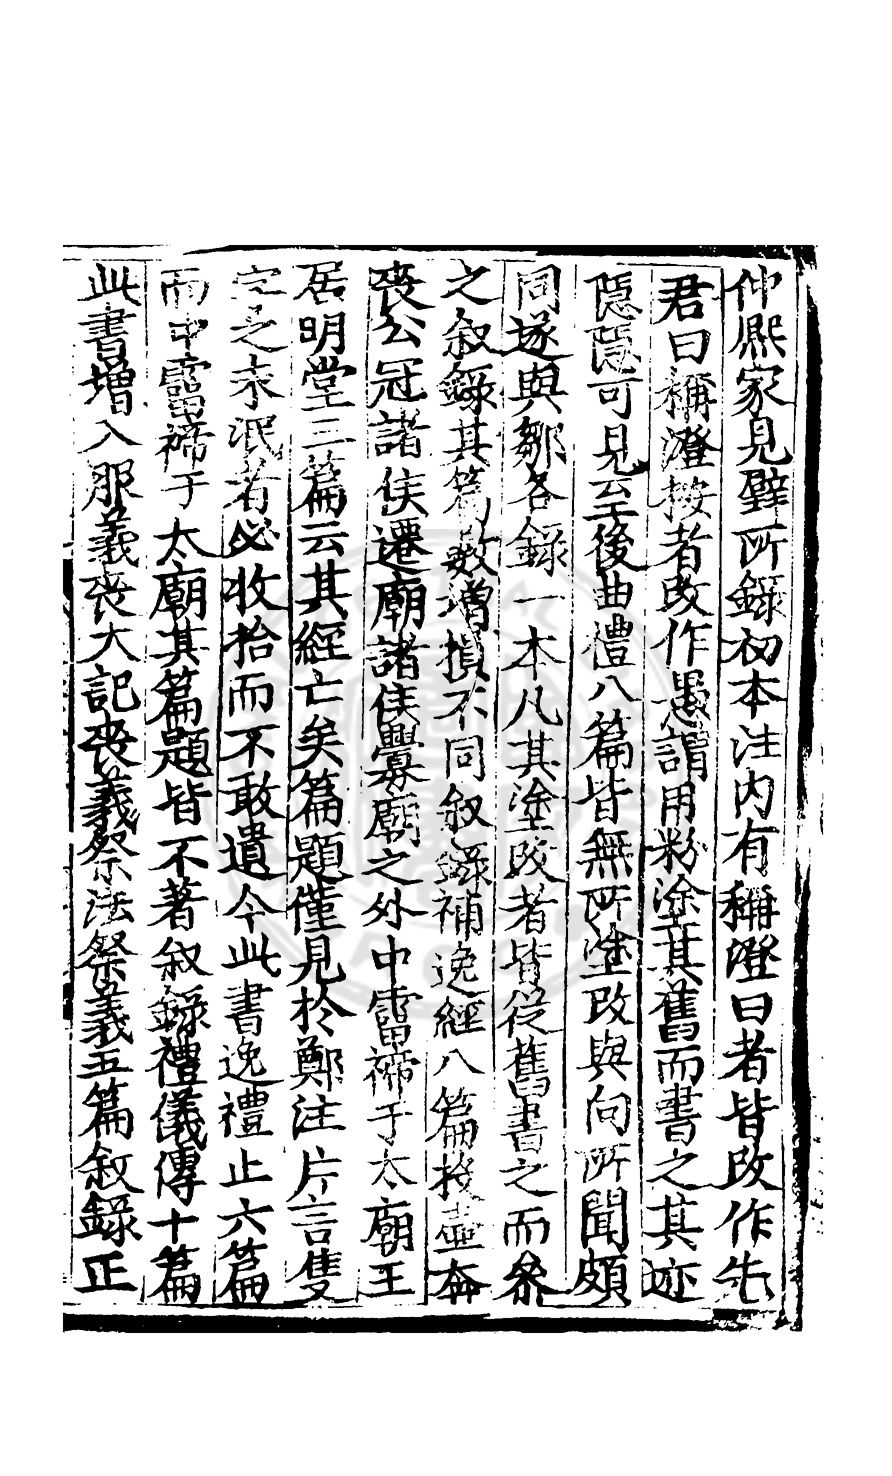 仲熈家見璧所錄初本注内有稱澄曰者皆改作先
君曰稱澄按者改作愚謂用粉塗其舊而書之其迹
隱隱可見至後曲禮八篇皆無所塗改與向所聞頗
同遂與鄒各錄一本凡其塗改者皆從舊書之而叅
之叙錄其篇數增損不同叙錄補逸經八篇投壷奔
喪公冠諸侯遷廟諸侯釁廟之外中霤禘于太廟王
居明堂三篇云其經亡矣篇題僅見於鄭注片言隻
字之未泯者必收拾而不敢遺今此書逸禮止六篇
而中霤禘于太廟其篇題皆不著叙錄禮儀傳十篇
此書增入服義喪大記喪義祭法祭義五篇叙錄正